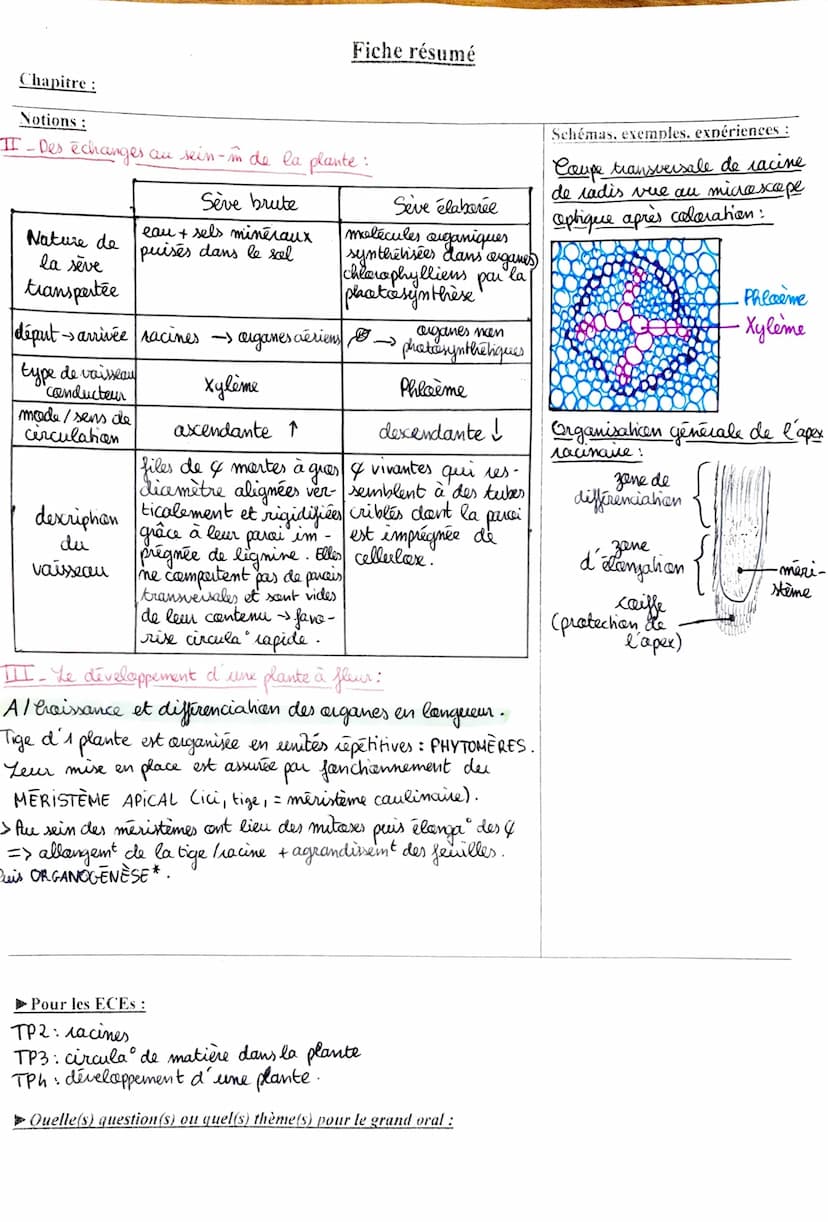 Fiche résumé
Chapitre :
Notions :
II - Des échanges au sein-m̂ de la plante :
Sève brute
Sève élaborée
Nature de
la sève
transportée
eau + sels minéraux
puisés dans le sol
molécules organiques
synthétisées dans organes
chlorophylliens par la
photosynthèse
départ → arrivée
racines → organes aériens
→ organes non
photosynthétiques
type de vaisseau
conducteur
Xylème
Phloème
mode / sens de
circulation
ascendante ↑
descendante ↓
description
du
vaisseau
files de ¢ mortes à gros
diamètre alignées ver-
ticalement et rigidifiées
grâce à leur paroi im-
prégnée de lignine. Elles
ne comportent pas de parois
transversales et sont vides
de leur contenu → favo-
rise circula° rapide.
¢ vivantes qui res-
semblent à des tubes
criblés dont la paroi
est imprégnée de
cellulose.
III - Le développement d'une plante à fleur :
A / Croissance et différenciation des organes en longueur.
Tige d'1 plante est organisée en unités répétitives : PHYTOMÈRES.
Leur mise en place est assurée par fonctionnement du
MÉRISTÈME APICAL (ici, tige, = méristème caulinaire).
> Au sein des méristèmes ont lieu des mitoses puis élonga° des ¢
=> allongemt de la tige / racine + agrandissemt des feuilles.
Puis ORGANOGÉNÈSE*.
Schémas, exemples, expériences :
Coupe transversale de racine
de radis vue au microscope
optique après coloration :
Phloème
Xylème
Organisation générale de l'apex
racinaire :
zone de
différenciation
zone
d'élongation
méri-
stème
coiffe
(protection de
l'apex)
► Pour les ECEs :
TP2 : racines
TP3 : circula° de matière dans la plante
TP4 : développement d'une plante.
► Quelle(s) question(s) ou quel(s) thème(s) pour le grand oral :